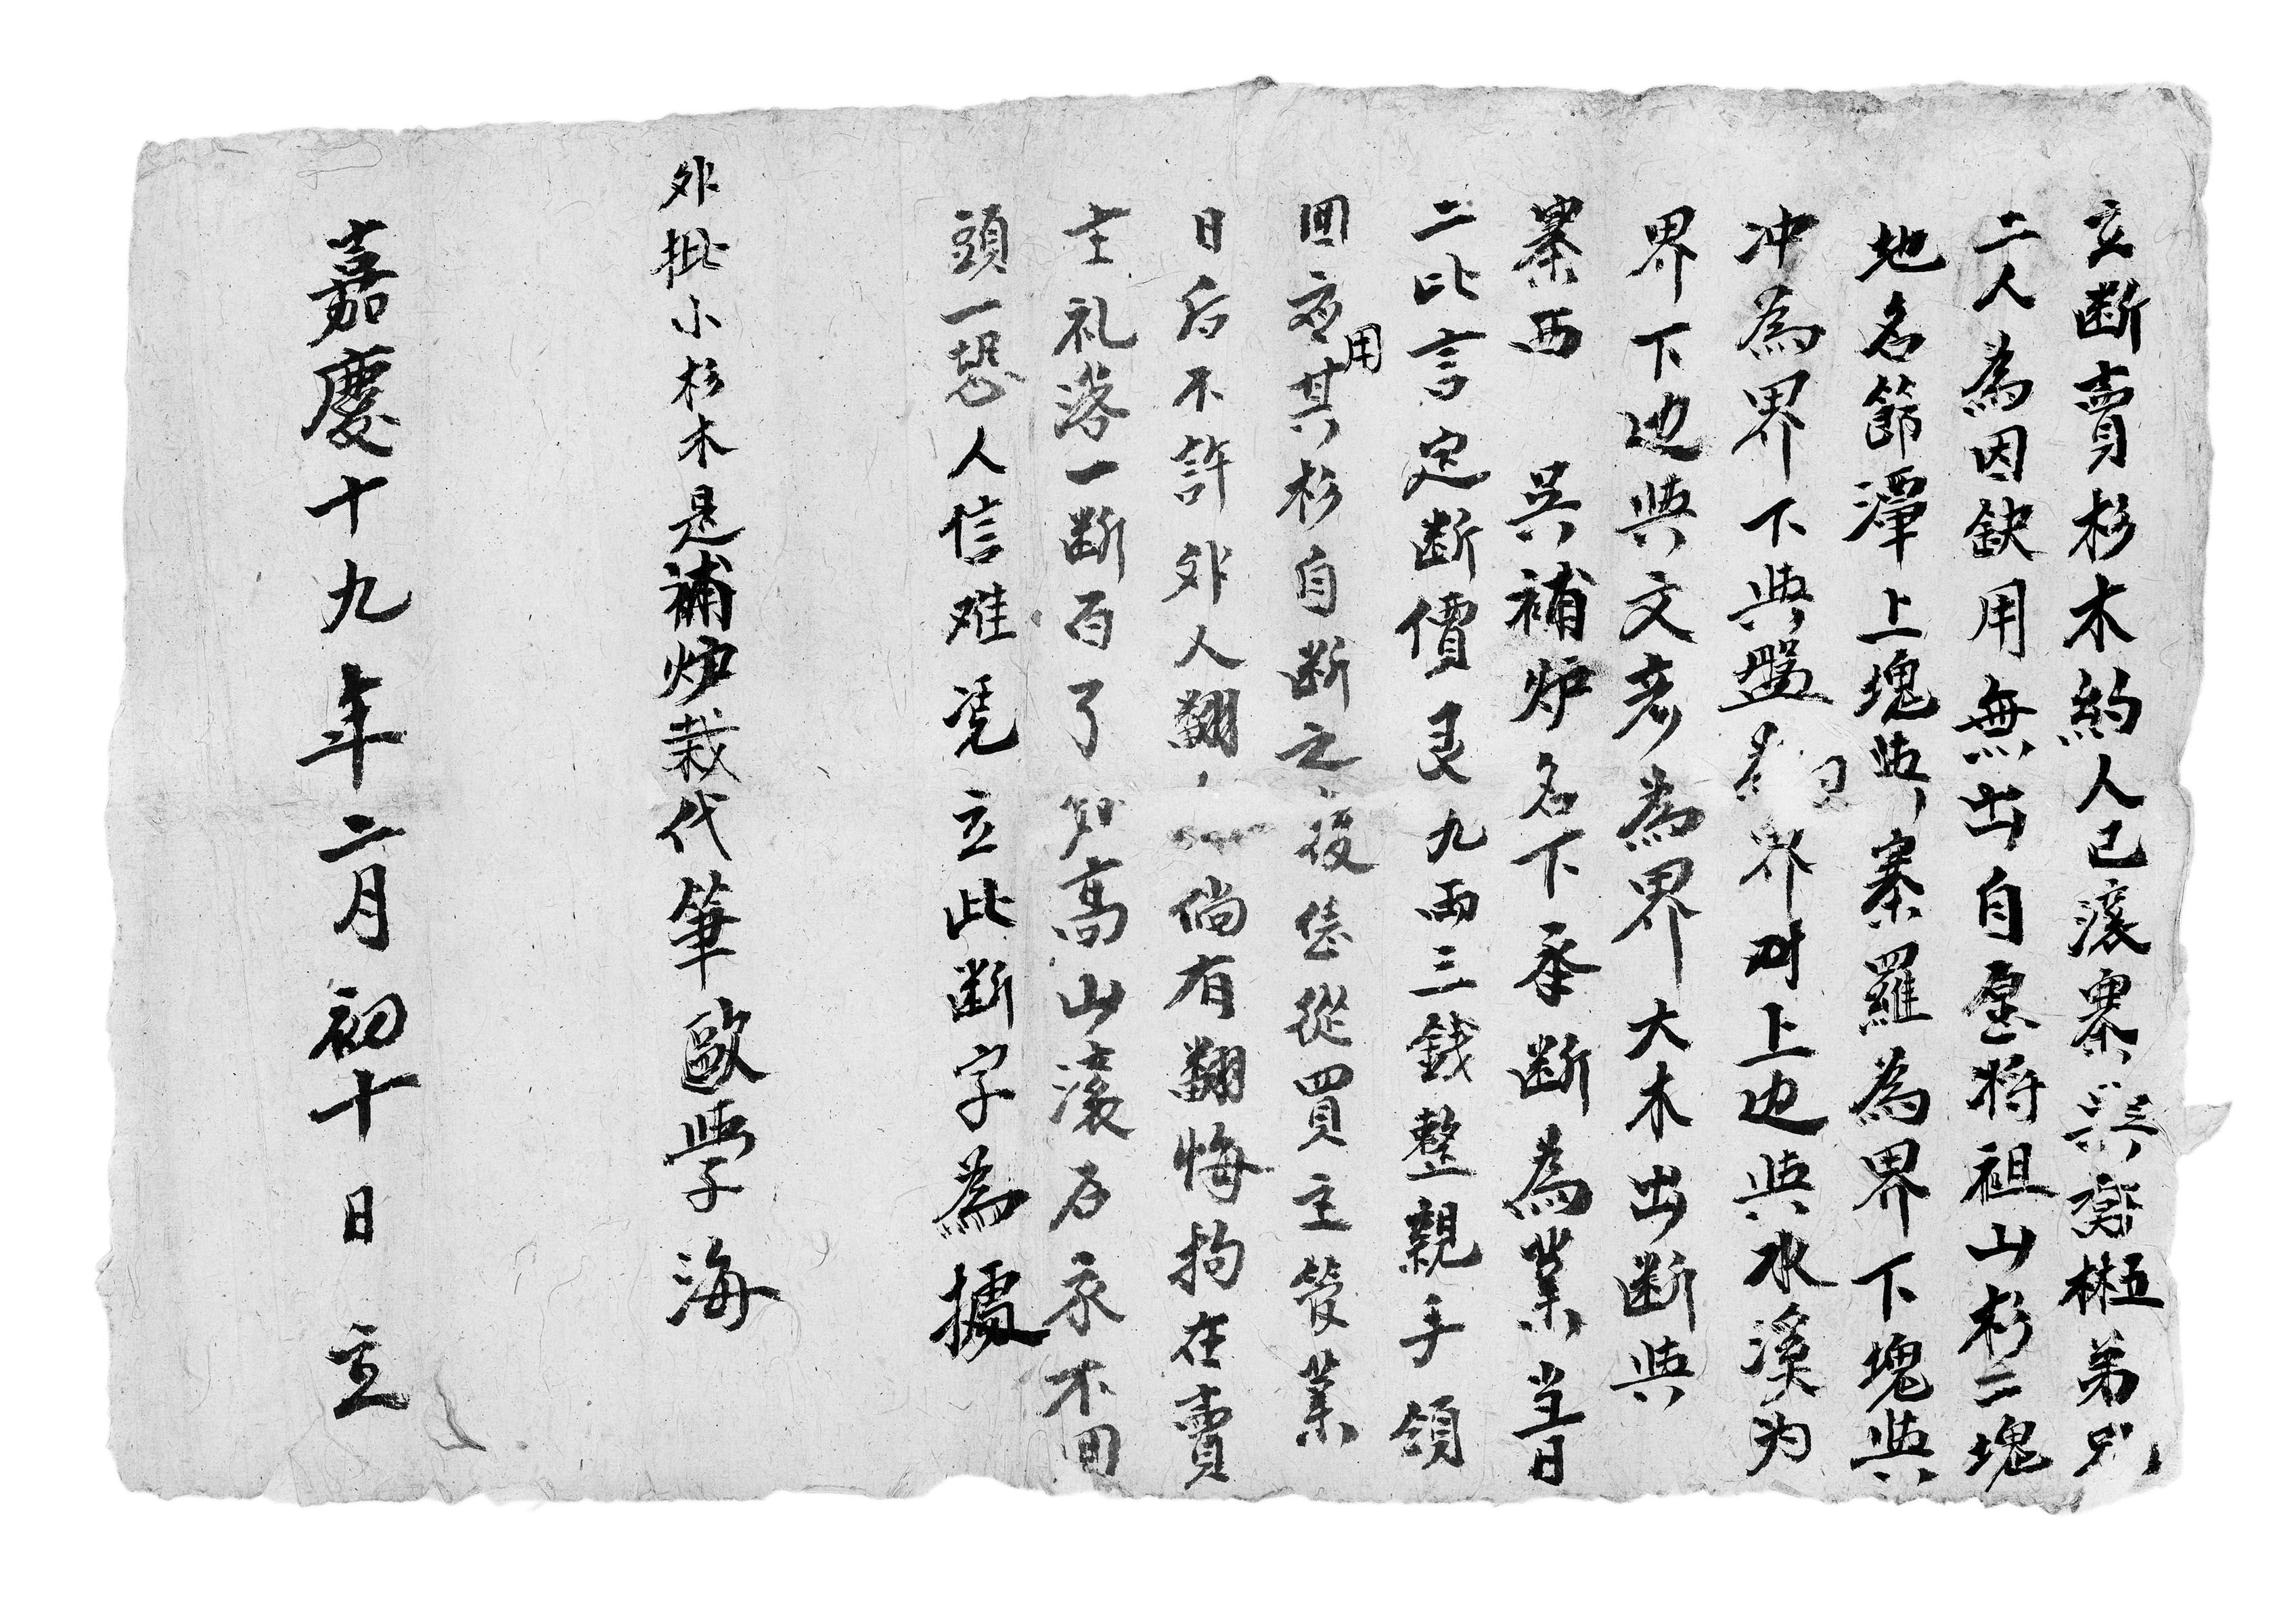 立断賣杉木約人己滾寨吳喬彬弟兄
二人為因缺用無出自愿将祖山杉二塊
地名節潭上塊與寨羅為界下塊與
冲為界下與盤為界对上边與水溪为
界下边與文彦為界大木出断與
寨西 吳補炉名下承断為業當日
二比言定断價艮九両三錢整親手領
回應用其杉自断之後恁從買主管業
日后不許外人翻倘有翻悔拘在賣
主礼落一断百了如高山滚石永不回
頭一恐人信难凭立此断字為據
外批小杉木是補炉栽代筆歐學海
嘉慶十九年二月初十日 立